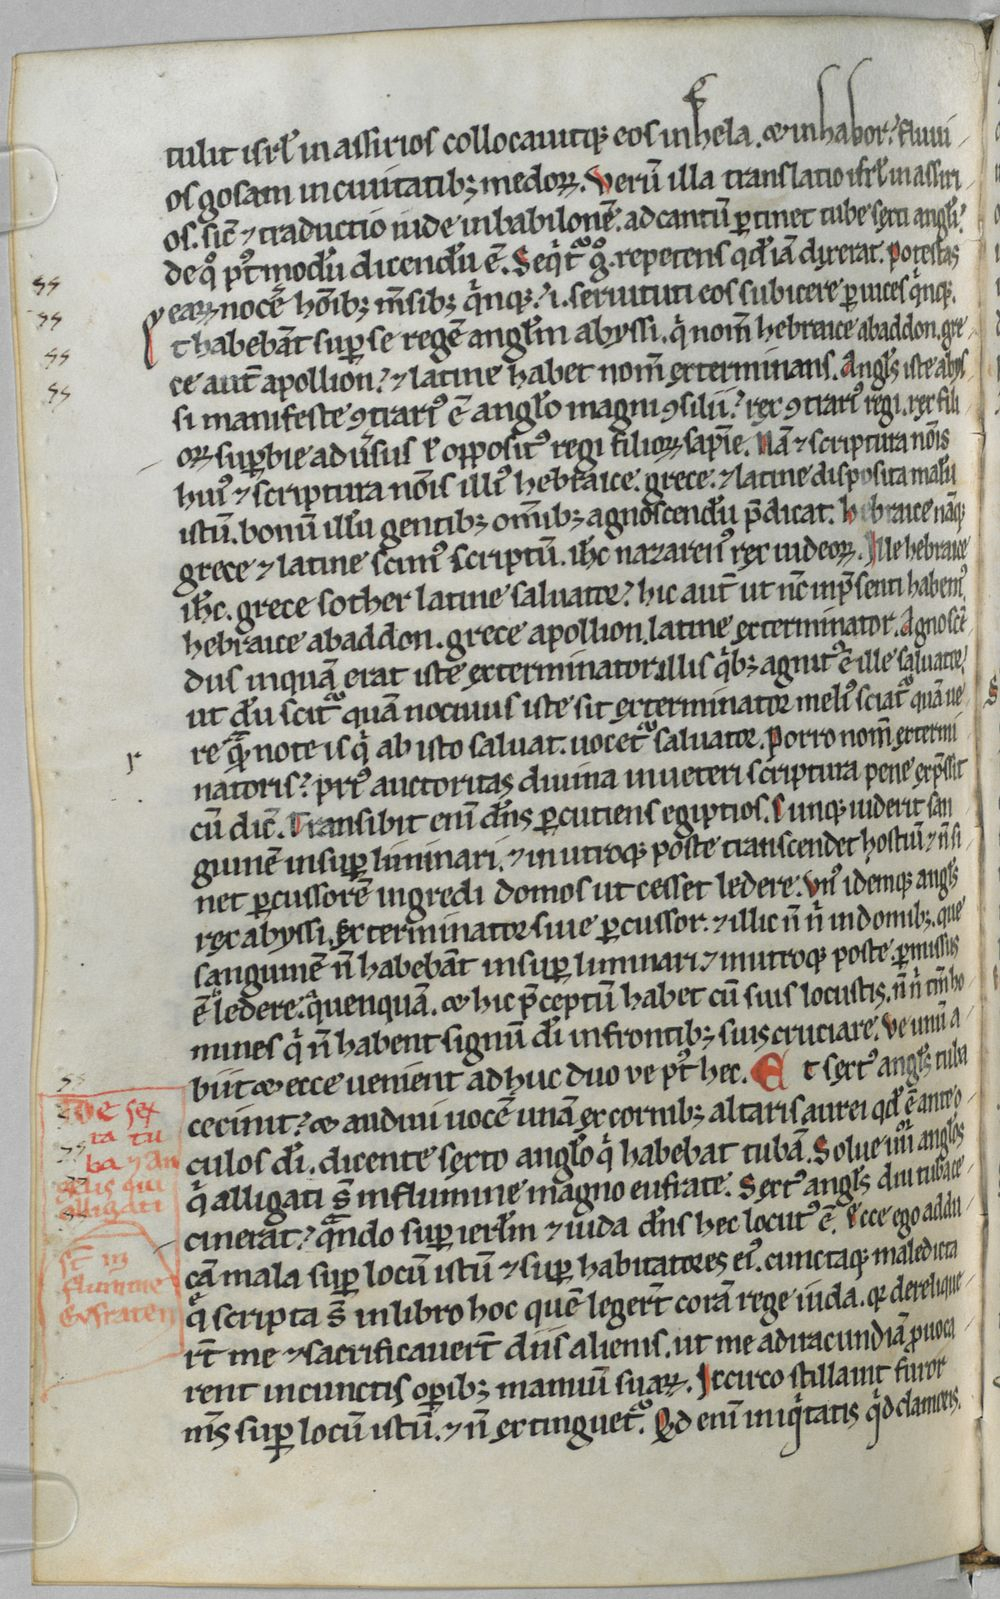 tulit isrł in assirios collocauitq; eos in hela. & in habor? fluui
os gosam in ciuitatib; medoꝝ. Verū illa translatio isrł in assiri
os. sic̄ ⁊ traductio iude in babilonē. ad cantū ꝑtinet tube sexti angłi?
de qͦ pꝰt modū dicendū ē. Seqͥtᷣ gͦ. repetens qd̓ iā dixerat. Potestas
eaꝝ nocē hōib; m̄sib; qͥnq;? i. seruituti eos subicere ꝑ uices qͥnq;.
Et habebāt suꝑ se regē angłm abyssi. qͥ nom̄ hebraice abaddon. gre
ce aut̄ apollion? ⁊ latine habet nom̄ exterminans. Angłs iste abys
si manifeste ꝯtrariꝰ ē angło magni ꝯsilii? rex ꝯtrariꝰ regi. rex fili
oꝝ suꝑbie aduersus ł oppositꝰ regi filioꝝ sapīe. Nā ⁊ scriptura nōis
huiꝰ ⁊ scriptura nōis illiꝰ hebraice. grece. ⁊ latine disposita malū
istū. bonū illū gentib; om̄ib; agnoscendū p̄dicat. hebraice nāq;
grece ⁊ latine scimꝰ scriptū. ih̄c nazarenꝰ rex iudeoꝝ. Ille hebraice
ih̄c. grece sother latine saluator? hic aut̄ ut nc̄ in p̄senti habemꝰ
hebraice abaddon. grece apollion. latine exterminator. Agnoscē
dus inquā erat iste exterminator illis qͥb; agnitꝰ ē ille saluator?
ut dū scitᷣ quā nociuus iste sit exterminator meliꝰ sciatᷣ quā ue
re ⁊ qͣm note is qͥ ab isto saluat. uocetᷣ saluator. Porro nom̄ extermi
natoris? priꝰ auctoritas diuina in ueteri scriptura pene exp̄ssit
cū dic̄. Transibit enī dn̄s ꝑcutiens egiptios. Cunq; uiderit san
guinē in suꝑ liminari. ⁊ in utroq; poste transcendet hostiū ⁊ n̄ si
net ꝑcussorē ingredi domos ut cesset ledere. Vnꝰ idemq; angłs
rex abyssi. Exterminator siue ꝑcussor. ⁊ illic n̄ nͥ in domib;. que
sanguinē n̄ habebāt in suꝑ luminari ⁊ in utroq; poste. ꝑmissus
ē ledere. quenquā. & hic p̄ceptū habet cū suis locustis. n̄ nͥ tm̄ ho
mines qͥ n̄ habent signū di in frontib; suis cruciare. Ve unū a
biit & ecce uenient adhuc duo ve pꝰt hec. Et sextꝰ angłs tuba
cecinit? & audiui uocē unā ex cornib; altaris aurei qd̓ ē ante o
culos di. dicentē sexto angło qͥ habebat tubā. Solue iiiiᵒʳ angłos
qͥ alligati s̄ in flumine magno eufrate. Sextꝰ angłs diu tuba ce
cinerat? qͣndo suꝑ ierłm ⁊ iuda dn̄s hec locutꝰ ē. Ecce ego addu
cā mala suꝑ locū istū ⁊ suꝑ habitatores eiꝰ. cunctaq; maledicta
q̄ scripta s̄ in libro hoc quē legert̄ corā rege iuda. qꝛ derelique
rt̄ me ⁊ sacrificauert̄ diis alienis. ut me ad iracundiā ꝓuoca
rent in cunctis oꝑib; manuū suaꝝ. Iccirco stillauit furor
ms̄ suꝑ locū istū. ⁊ n̄ extinguetᷣ. Qd enī iniqͥtatis qͥd clamoris.
De sex
ta tu
ba ⁊ an
gelis qui
alligati
st̄ in
flumine
Eufraten